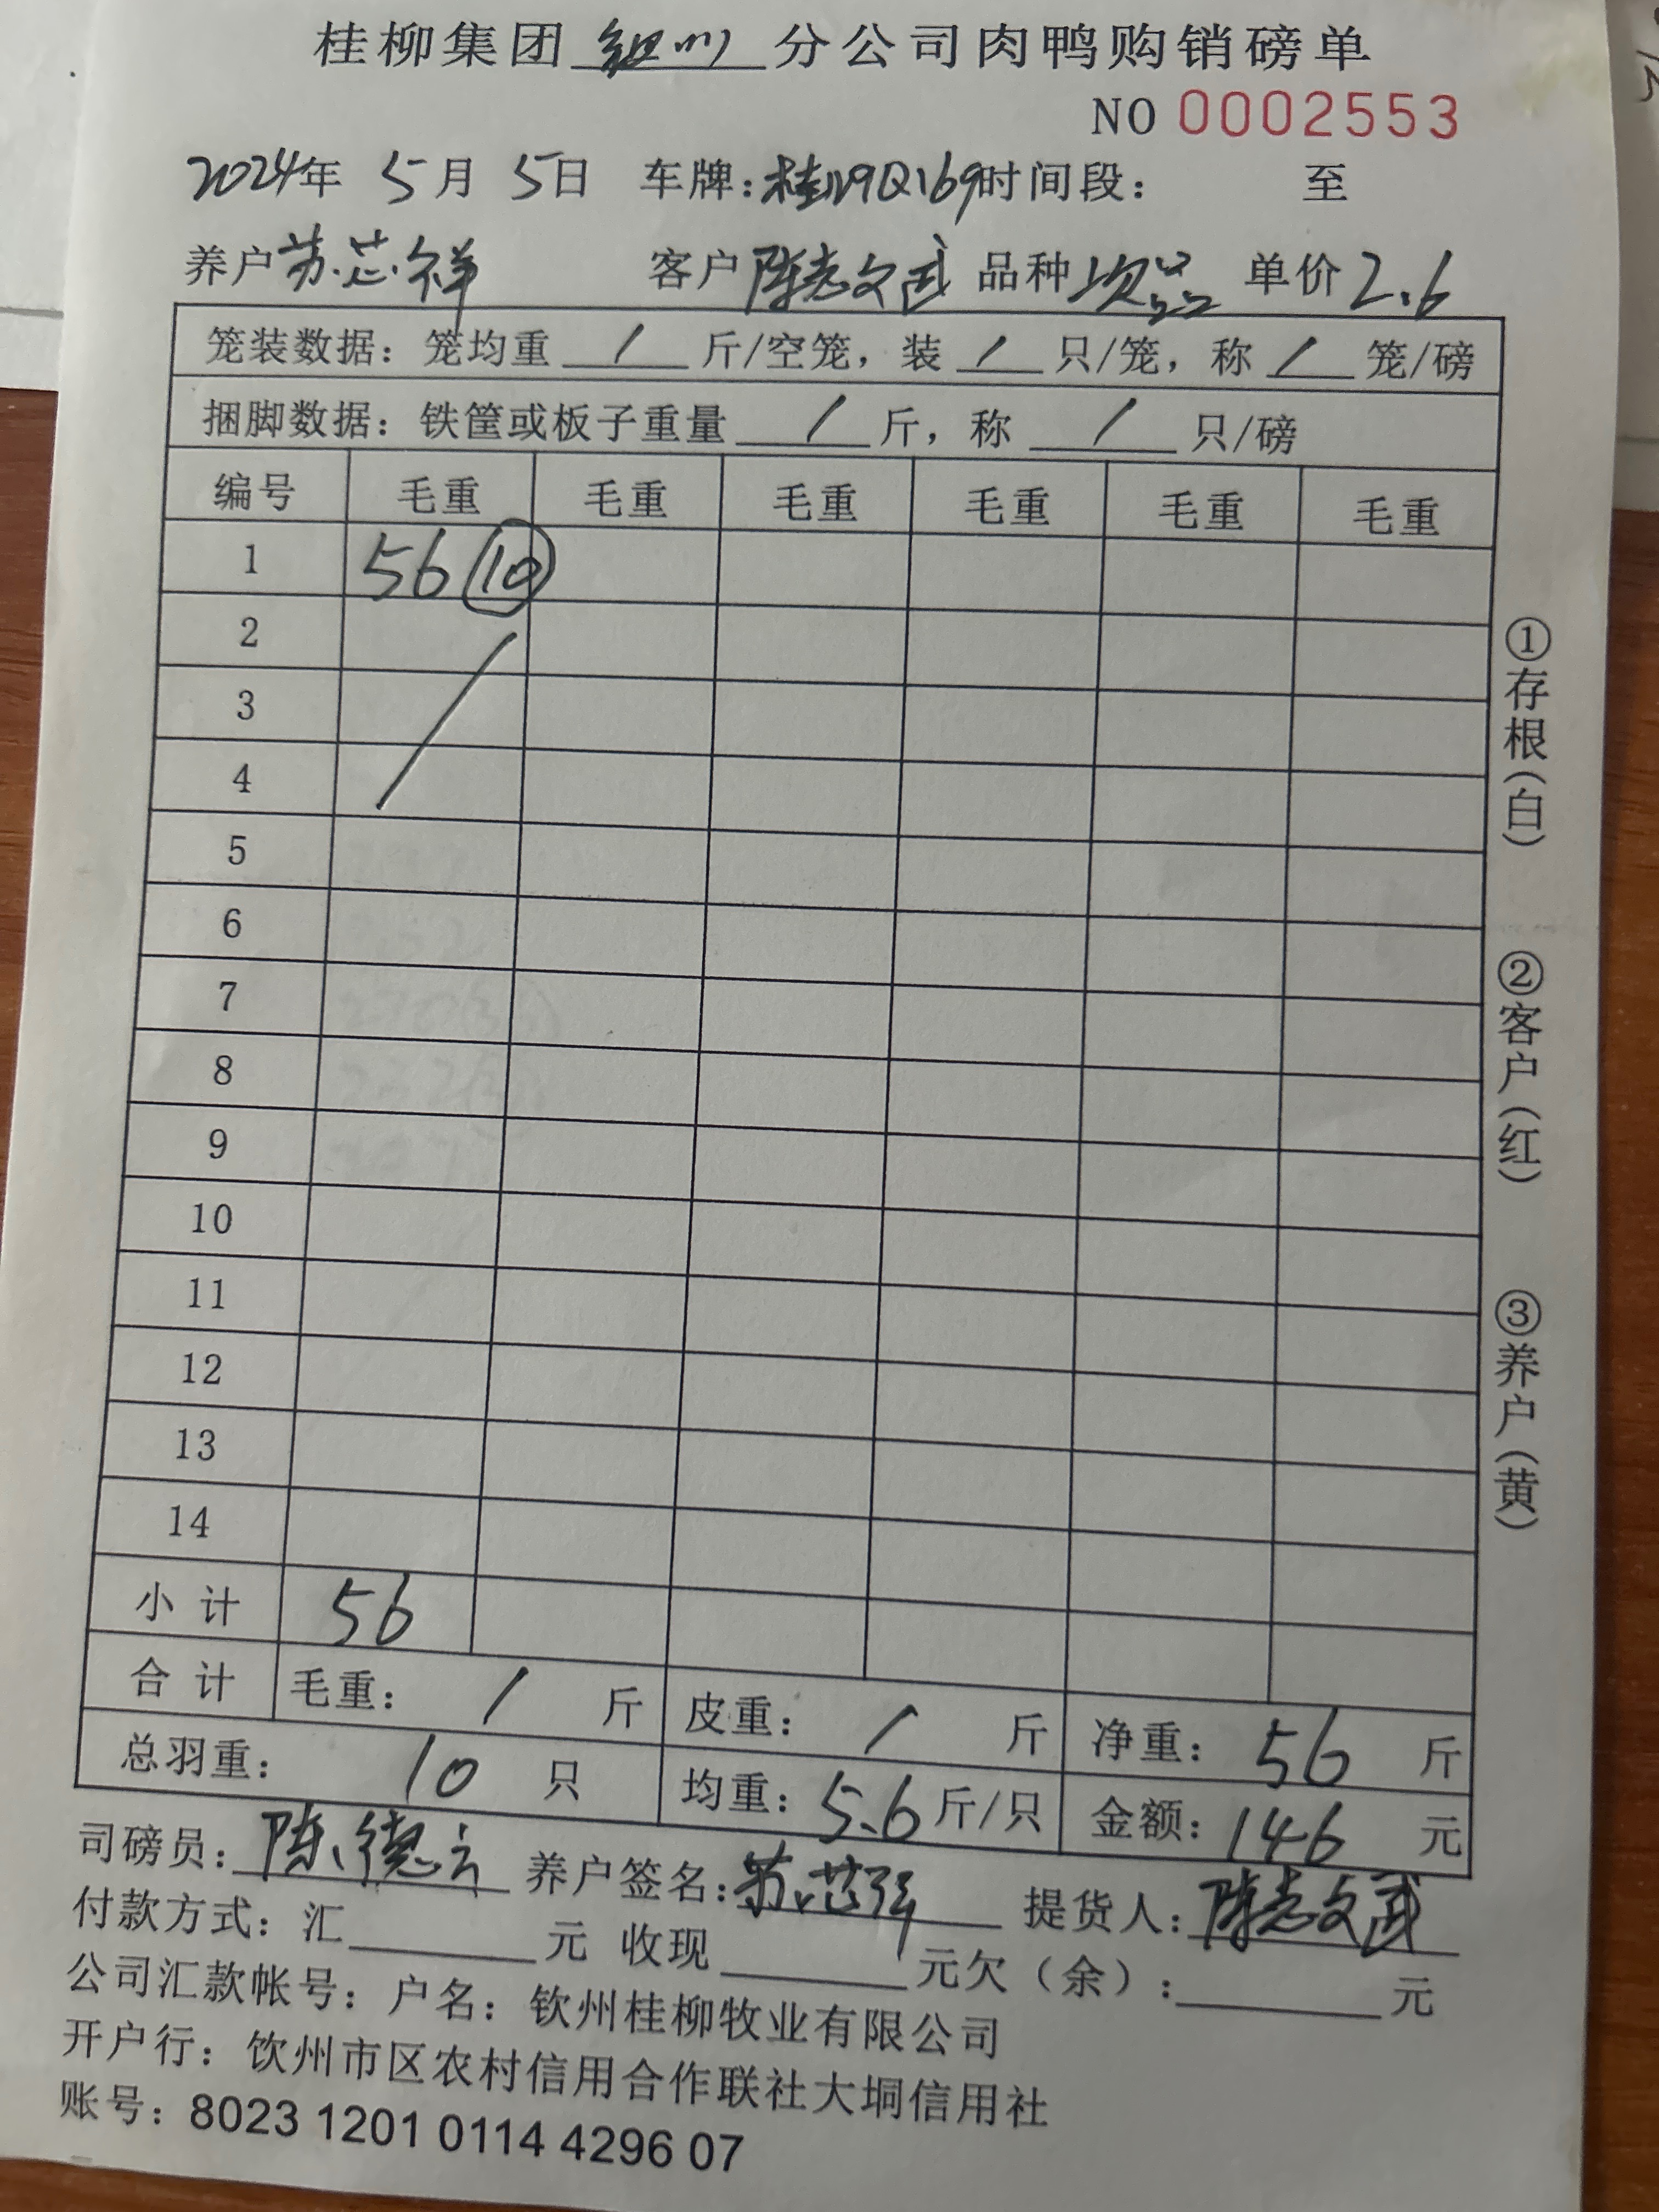 桂柳集团 钦州 分公司肉鸭购销磅单
NO 0002553
2024年 5月 5日 车牌:桂N9Q169时间段: 至
养户 苏芯祥 客户 陈志文武 品种 次品 单价 2.6
笼装数据: 笼均重 / 斤/空笼, 装 / 只/笼, 称 / 笼/磅
捆脚数据: 铁筐或板子重量 / 斤, 称 / 只/磅
编号 毛重 毛重 毛重 毛重 毛重 毛重
1 56 ⑩
2
3
4
5
6
7
8
9
10
11
12
13
14
小计 56
合计 毛重: / 斤 皮重: / 斤 净重: 56 斤
总羽重: 10 只 均重: 5.6 斤/只 金额: 146 元
司磅员: 陈德云 养户签名: 苏芯 提货人: 陈志文武
付款方式: 汇 元 收现 元欠(余): 元
公司汇款帐号: 户名: 钦州桂柳牧业有限公司
开户行: 钦州市区农村信用合作联社大垌信用社
账号: 8023 1201 0114 4296 07
①存根(白) ②客户(红) ③养户(黄)